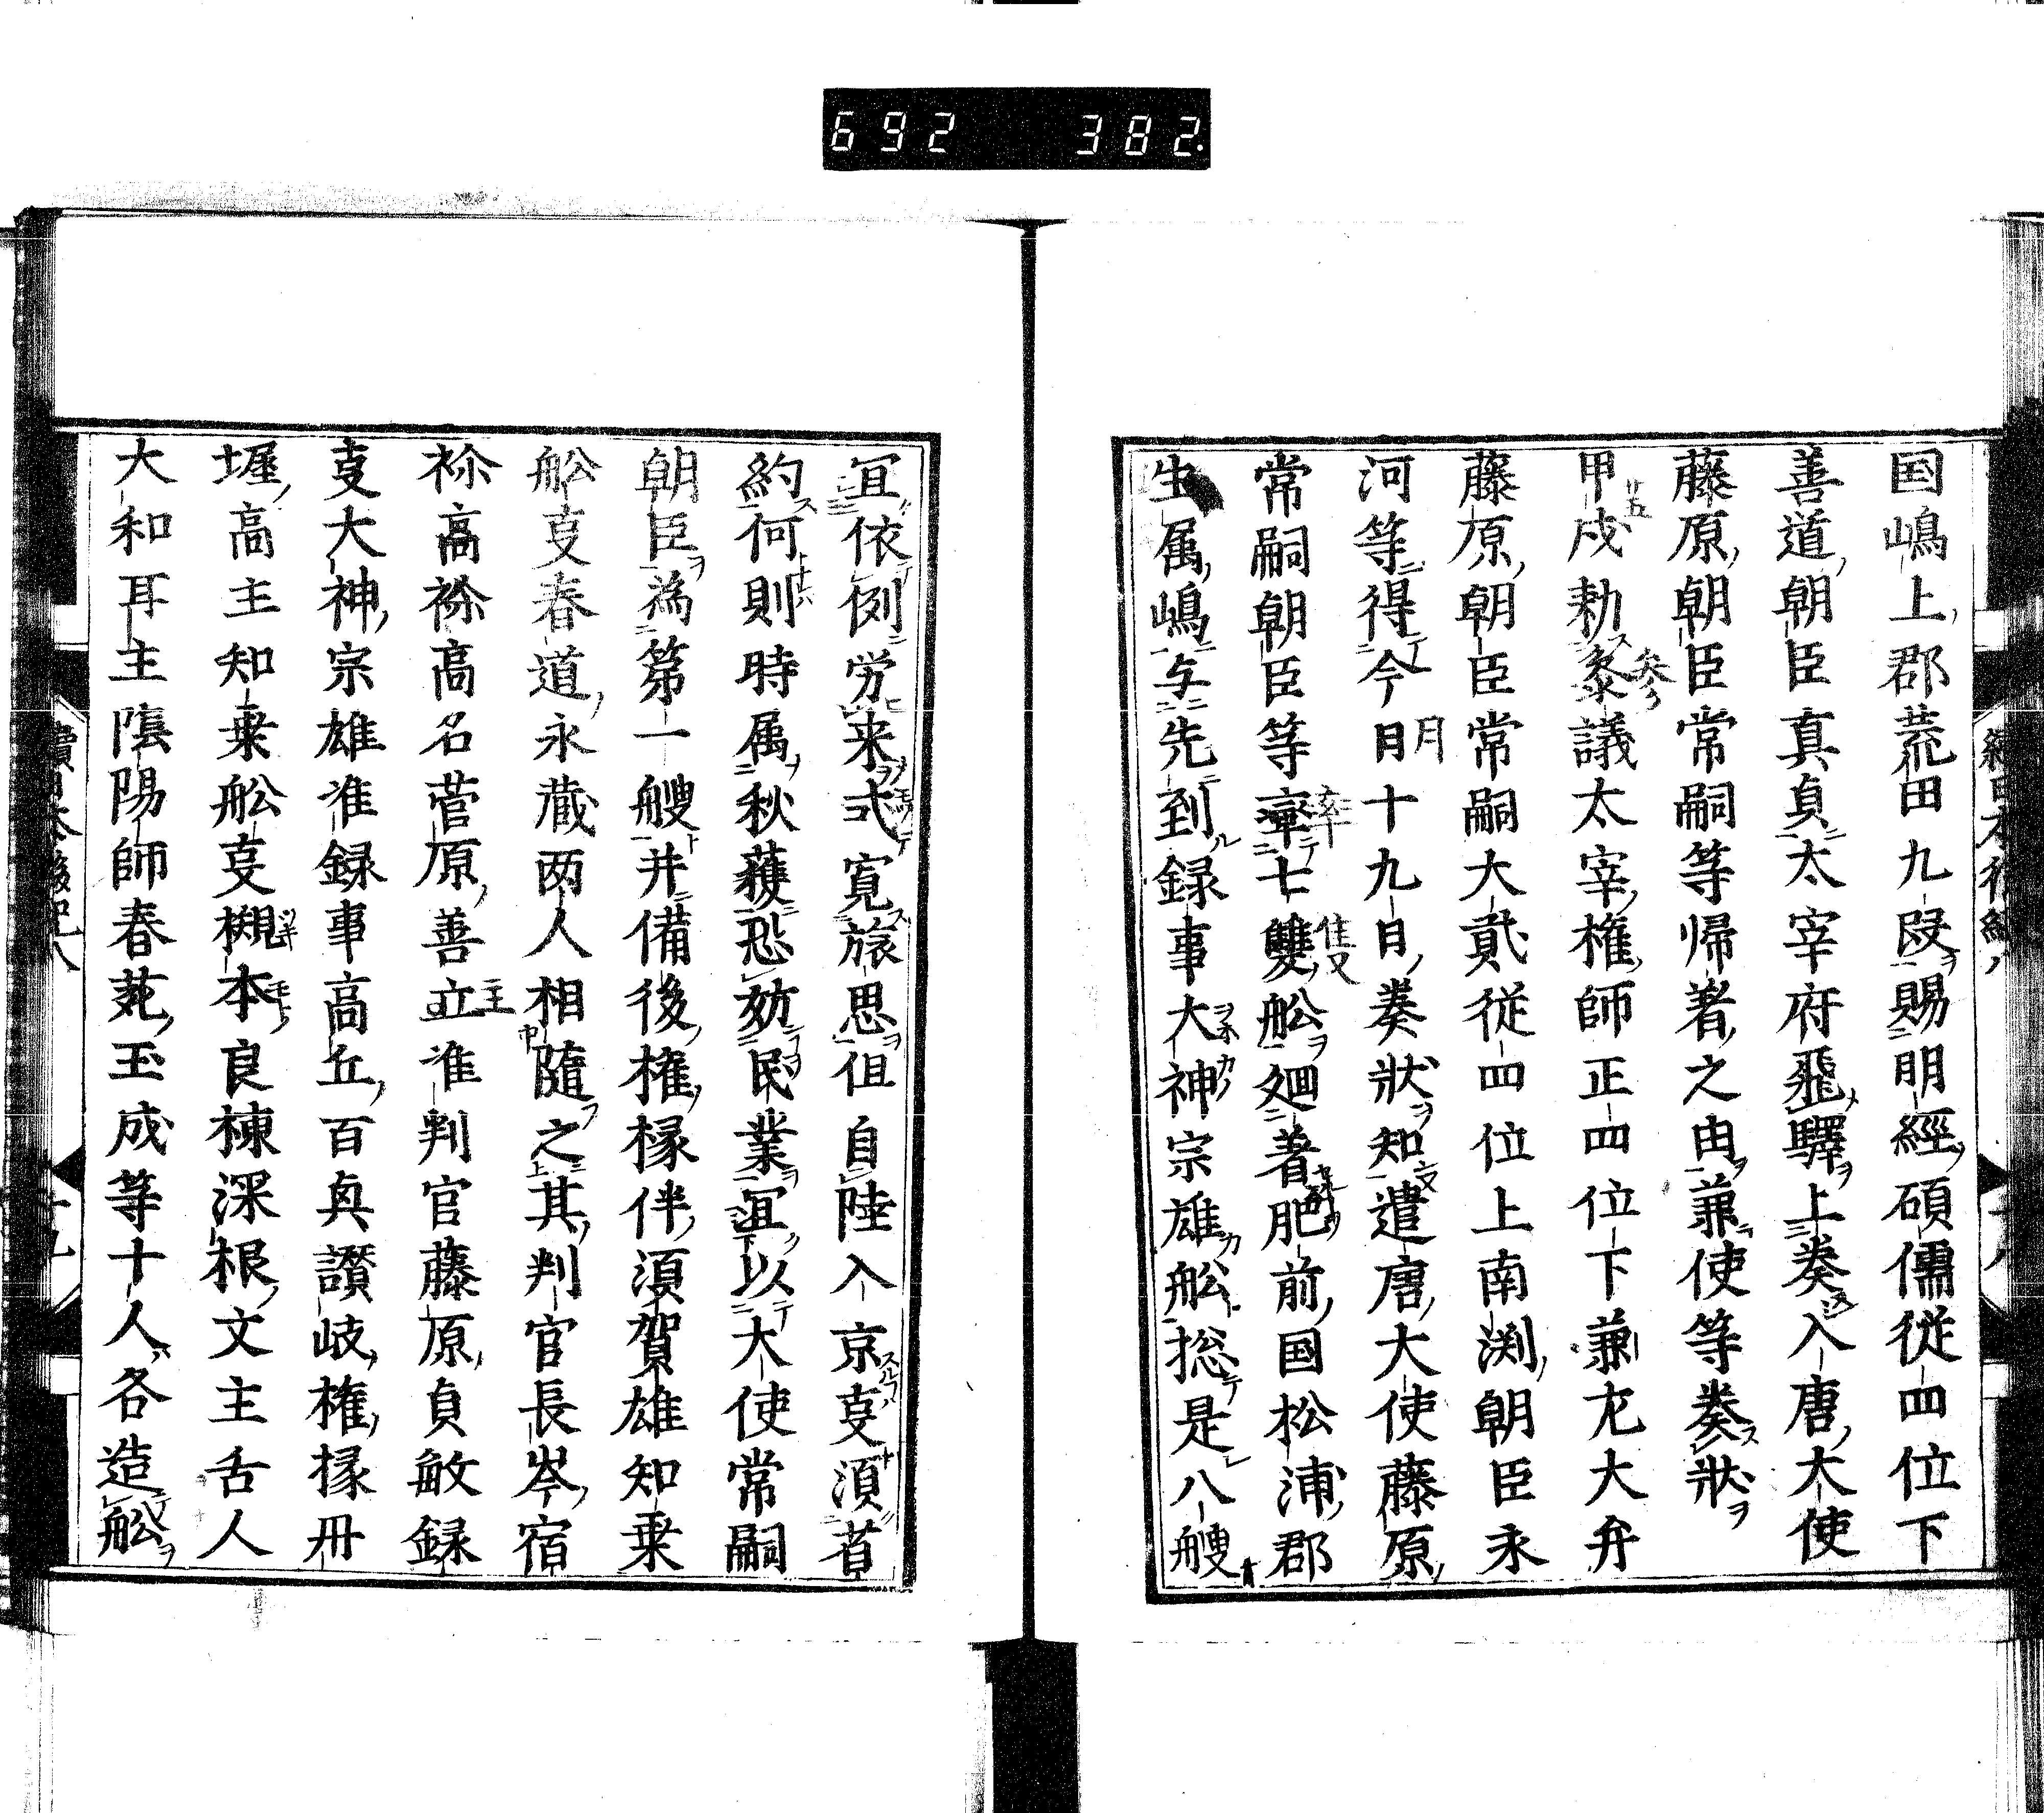 692 382
国嶋上郡荒田九段賜明經碩儒従四位下
善道朝臣真貞太宰府飛驛上奏入唐大使
藤原朝臣常嗣等帰着之由兼使等奏狀
甲戌勅叅議太宰権師正四位下兼左大弁
藤原朝臣常嗣大貳従四位上南渕朝臣永
河等得今日十九日奏狀知遣唐大使藤原
常嗣朝臣等率七雙舩廻着肥前国松浦郡
生属嶋与先到録事大神宗雄舩惣是八艘
宜依例労来式寛旅思但自陸入京叓湏省
約何則時属秋蘓恐妨民業宜以大使常嗣
朝臣為第一艘并備後権掾伴湏賀雄知乗
舩叓春道永蔵两人相隨之其判官長岑宿
祢高祢高名菅原善立准判官藤原貞敏録
叓大神宗雄准録事高丘百貞讃岐権掾丹
墀高主知乗舩叓槻本良棟深根文主舌人
大和耳主陰陽師春苑玉成等十人各造舩